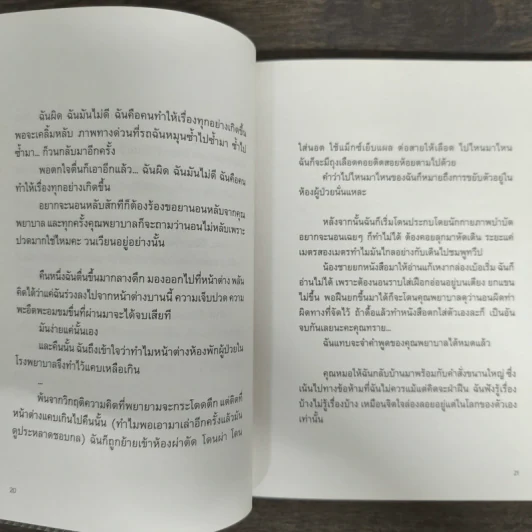 ฉันผิด ฉันมันไม่ดี ฉันคือคนทำให้เรื่องทุกอย่างเกิดขึ้น
พอจะเคลิ้มหลับ ภาพทางด่วนที่รถฉันหมุนซ้ำไปซ้ำมา ซ้ำไป
ซ้ำมา... ก็วนกลับมาอีกครั้ง
พอตกใจตื่นก็เอาอีกแล้ว... ฉันผิด ฉันมันไม่ดี ฉันคือคน
ทำให้เรื่องทุกอย่างเกิดขึ้น
อยากจะนอนหลับสักทีก็ต้องร้องขอยานอนหลับจากคุณ
พยาบาล และทุกครั้งคุณพยาบาลก็จะถามว่านอนไม่หลับเพราะ
ปวดมากใช่ไหมคะ วนเวียนอยู่อย่างนั้น
คืนหนึ่งฉันตื่นขึ้นมากลางดึก มองออกไปที่หน้าต่าง พลัน
คิดได้ว่าแค่ฉันร่วงลงไปจากหน้าต่างบานนี้ ความเจ็บปวด ความ
พะอืดพะอมขมขื่นที่ผ่านมาจะได้จบเสียที
มันง่ายแค่นั้นเอง
และคืนนั้น ฉันถึงเข้าใจว่าทำไมหน้าต่างห้องพักผู้ป่วยใน
โรงพยาบาลจึงทำไว้แคบเหลือเกิน
–
พ้นจากวิกฤติความคิดที่พยายามจะกระโดดตึก แต่ติดที่
หน้าต่างแคบเกินไปคืนนั้น (ทำไมพอเอามาเล่าอีกครั้งแล้วมัน
ดูประหลาดชอบกล) ฉันก็ถูกย้ายเข้าห้องผ่าตัด โดนผ่า โดน
20
ใส่นอต ใช้แม็กซ์เย็บแผล ต่อสายให้เลือด ไปไหนมาไหน
ฉันก็จะมีถุงเลือดคอยติดสอยห้อยตามไปด้วย
คำว่าไปไหนมาไหนของฉันก็หมายถึงการขยับตัวอยู่ใน
ห้องผู้ป่วยนั่นแหละ
หลังจากนั้นฉันก็เริ่มโดนประกบโดยนักกายภาพบำบัด
อยากจะนอนเฉยๆ ก็ทำไม่ได้ ต้องคอยลุกมาหัดเดิน ระยะแค่
เมตรสองเมตรทำไมมันไกลอย่างกับเดินไปชมพูทวีป
น้องชายยกหนังสือมาให้อ่านแก้เหงากล่องเบ้อเริ่ม ฉันก็
อ่านไม่ได้ เพราะต้องนอนราบใส่เฝือกอ่อนอยู่บนเตียง ยกแขน
ไม่ขึ้น พอฝืนยกขึ้นมาได้ก็จะโดนคุณพยาบาลดุว่านอนผิดท่า
ผิดทางที่จัดไว้ ถ้าดื้อแล้วทำหนังสือตกใส่ตัวเองละก็ เป็นอัน
จบกันเลยนะคะคุณทราย...
ฉันแทบจะจำคำพูดของคุณพยาบาลได้หมดแล้ว
คุณหมอให้ฉันกลับบ้านมาพร้อมกับคำสั่งขนานใหญ่ ซึ่ง
เน้นไปทางข้อห้ามที่ฉันไม่ควรแม้แต่คิดจะฝ่าฝืน ฉันฟังรู้เรื่อง
บ้างไม่รู้เรื่องบ้าง เหมือนจิตใจล่องลอยอยู่แต่ในโลกของตัวเอง
เท่านั้น
21